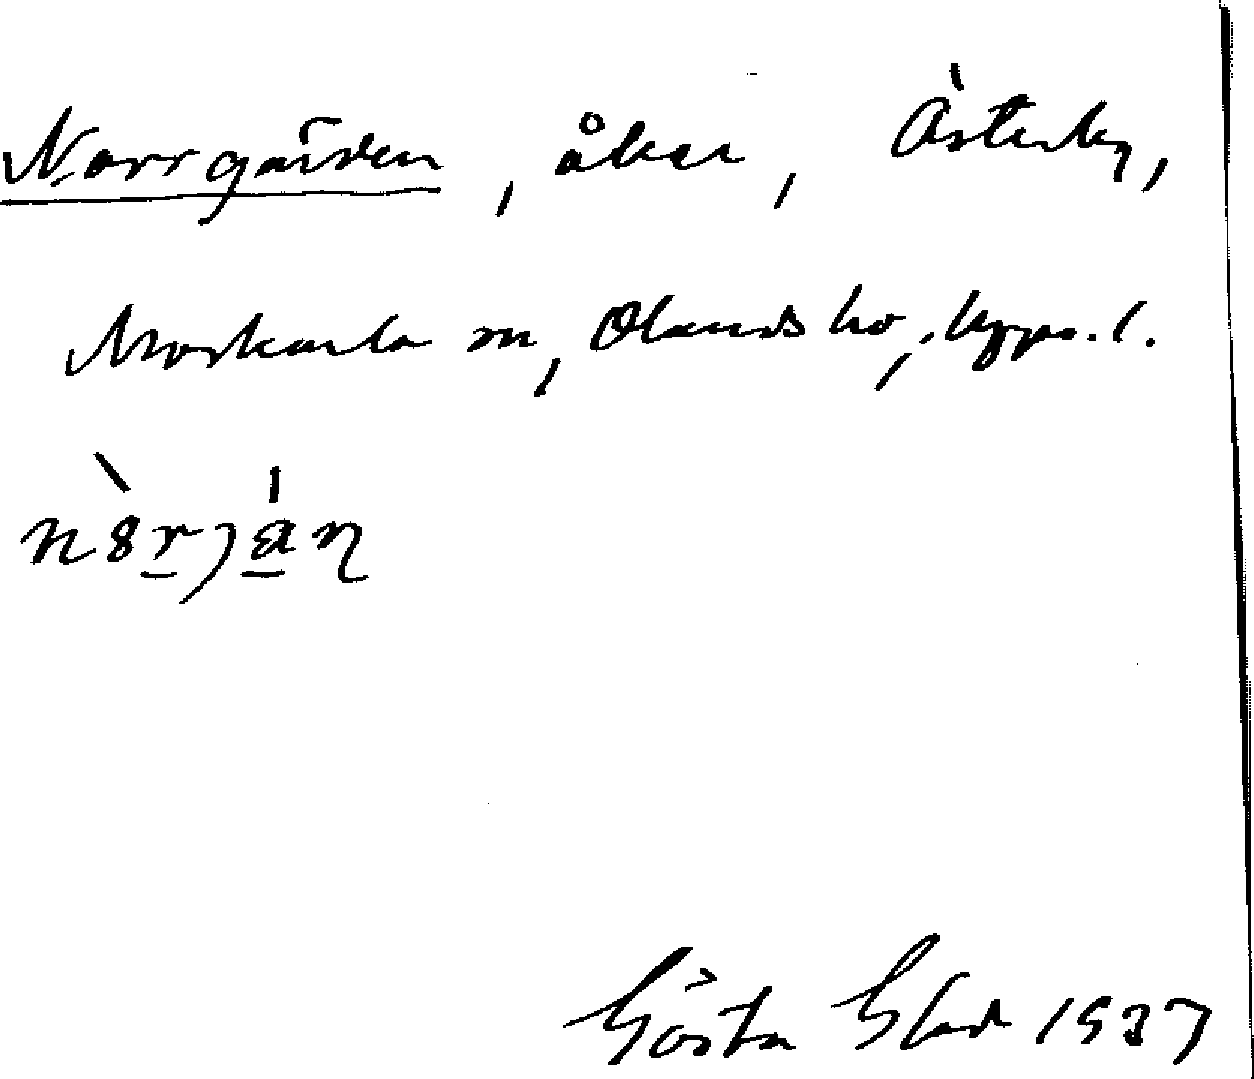 Norrgården, åker, Österby,
Morkarla sn, Olands hd, Upps. l.
Gösta Glad 1937